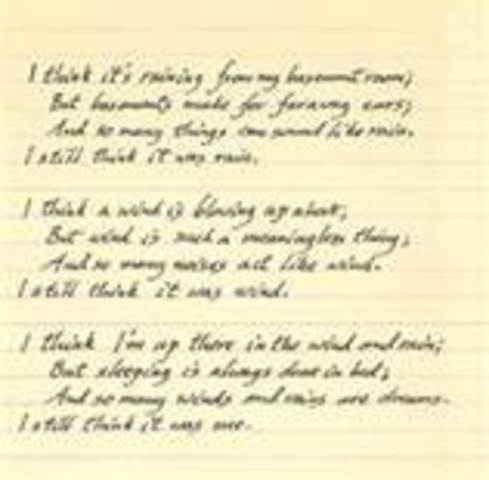 I think it's raining from my basement room;
But basements make for faraway ears;
And so many things can sound like rain.
I still think it was rain.
I think a wind is blowing up about;
But wind is such a meaningless thing;
And so many noises act like wind.
I still think it was wind.
I think I'm up there in the wind and rain;
But sleeping is always done in bed;
And so many winds and rains are dreams.
I still think it was me.